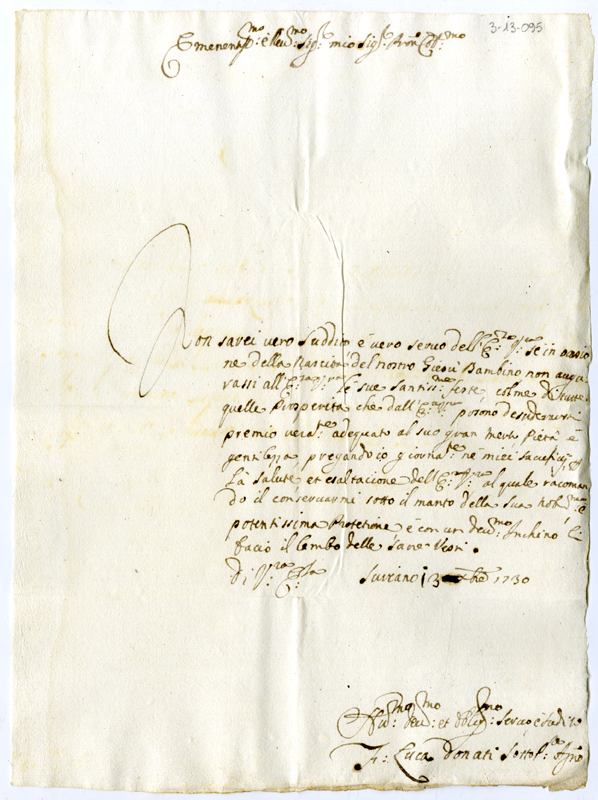 3-13-095
Emenentiss:mo e Reud:mo Sig:re mio Sig:re Pron Coll:mo
Non sarei vero suddito è vero seruo dell' E:za V:ra se in occasio
ne della Nascita del nostro Giesu Bambino non augu
rassi all' E:za V:ra le sue santiss:me feste, colme di tutte
quelle Prosperità che dall' E:za V:ra posono desiderarsi
premio uera:te adequato al suo gran Merto Pietà è
gentilezza pregando io giornal:te ne miei sacrificij
La salute et esaltacione dell' E:za V:ra al quale racoman
do il conseruarmi sotto il manto della sua nob:ma e
potentissima Protetione è con un deuo:mo Inchino li
facio il lembo delle sacre Vesti.
Di V:ra E:za Suriano 13 Xbre 1730
Hu:mo deu:mo et obblig:mo seruo è suddito
F: Luca Donati